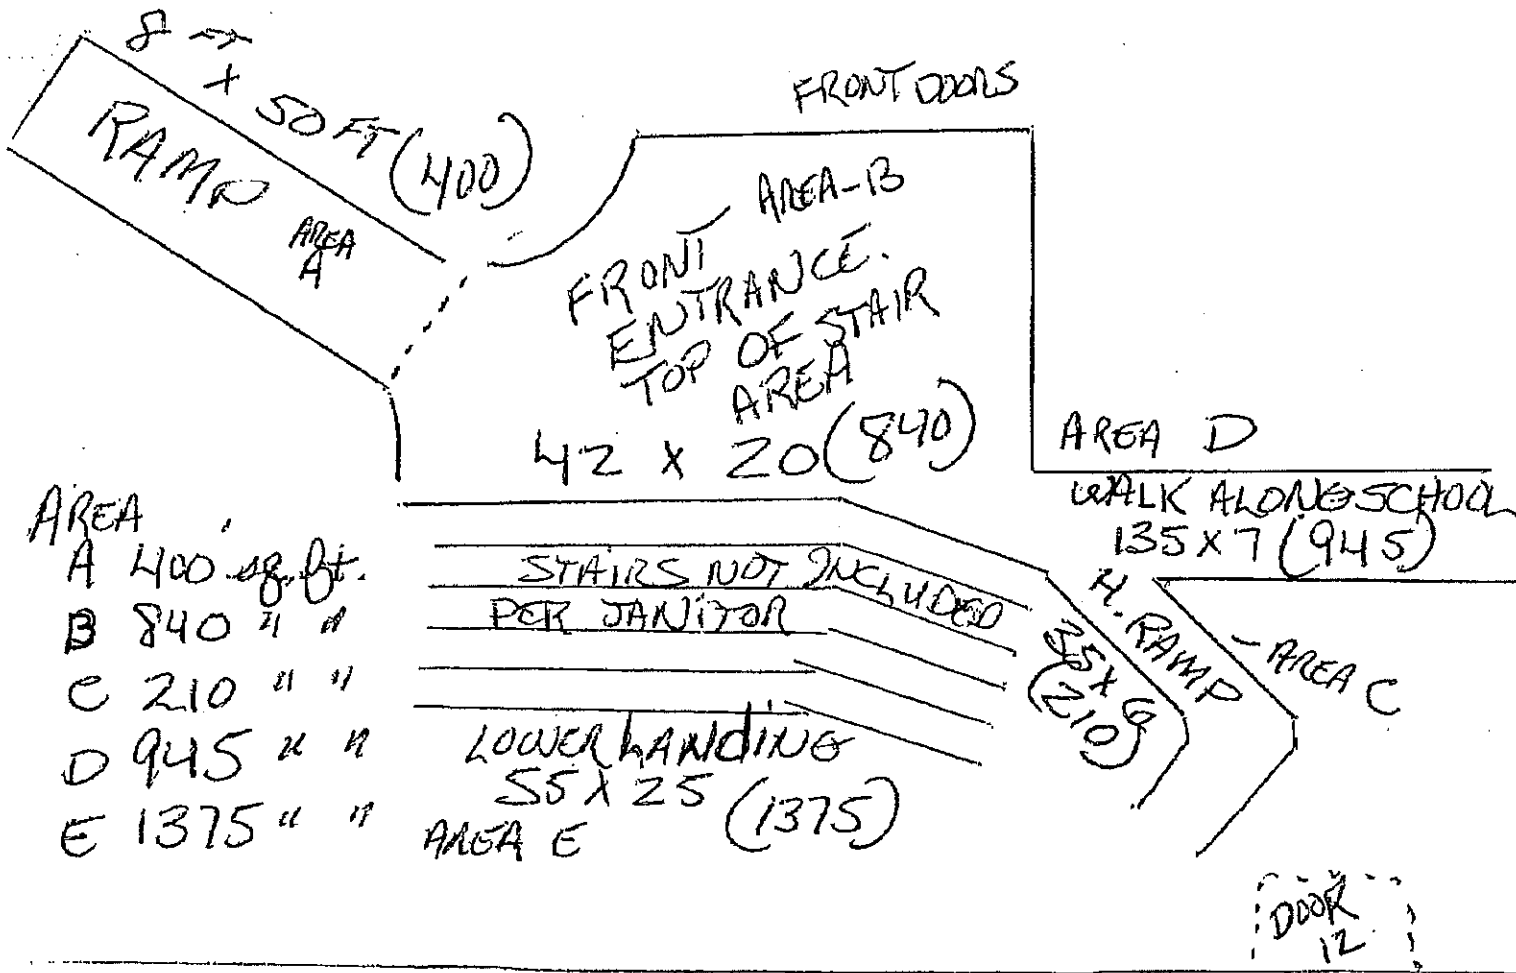 8 →
x
50 FT (400)
RAMP
AREA
A
FRONT DOORS
AREA-B
FRONT
ENTRANCE.
TOP OF STAIR
AREA
42 x 20 (840)
AREA D
WALK ALONG SCHOOL
135 x 7 (945)
AREA
A 400 sq. ft.
B 840 " "
C 210 " "
D 945 " "
E 1375 " "
STAIRS NOT INCLUDED
PER JANITOR
H. RAMP
35 x 6
(210)
AREA C
LOWER LANDING
55 x 25 (1375)
AREA E
DOOR
12